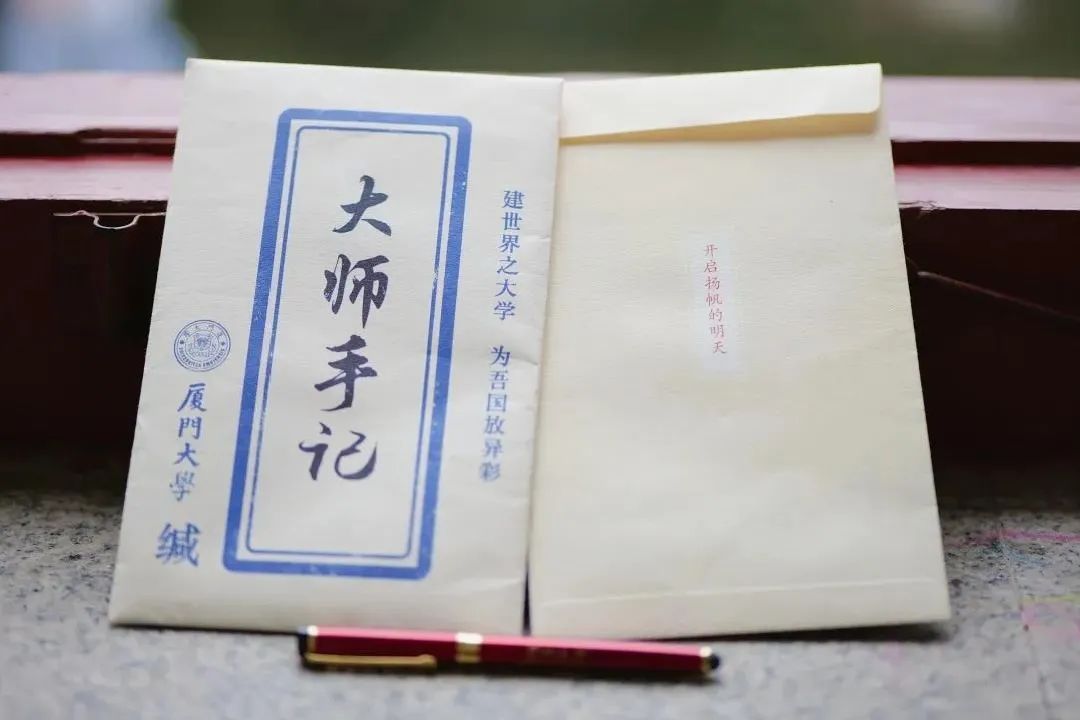 大师手记
建世界之大学 为吾国放异彩
厦門大學 缄
开启扬帆的明天